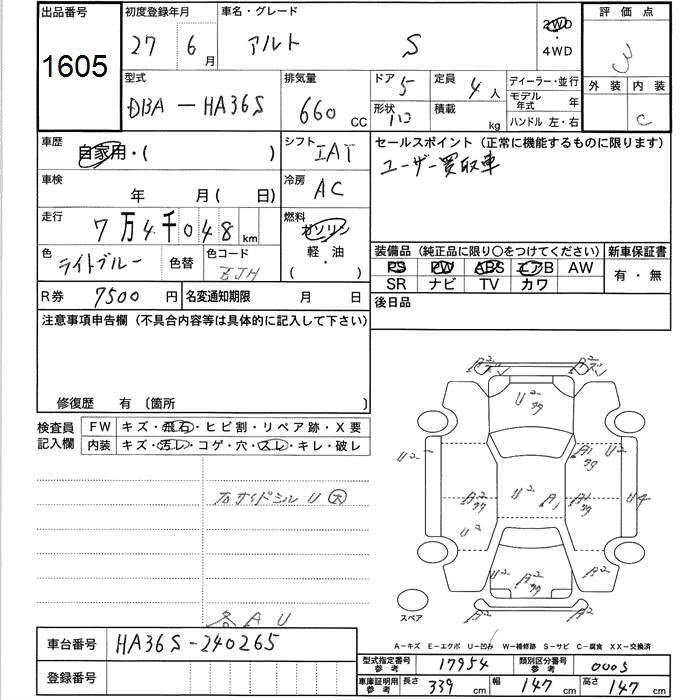 出品番号 初度登録年月 車名・グレード 評価点
1605 27 6月 アルト S 2WD ・4WD 3
型式 排気量 ドア 5 定員 4人 ディーラー・並行 外装 内装
DBA-HA36S 660 CC 形状 積載 kg モデル年式 年 C
ハンドル 左・右
車歴 自家用・( ) シフト IAT セールスポイント(正常に機能するものに限ります)
ユーザー買取車
車検 年 月(日) 冷房 AC
走行 7万4千048km 燃料 ガソリン 軽・油 ( )
色 ライトブルー 色替 色コード ZJH
装備品(純正品に限り○をつけてください) 新車保証書
PS PW ABS エアB AW 有・無
SR ナビ TV カワ
R券 7500円 名変通知期限 月 日 後日品
注意事項申告欄(不具合内容等は具体的に記入して下さい)
修復歴 有〔箇所 〕
検査員記入欄 FW キズ・飛石・ヒビ割・リペア跡・X要
内装 キズ・汚レ・コゲ・穴・スレ・キレ・破レ
右サイドシル U 大
各 A U
A2 A2
U2 99
U2 A1 99 U2
A2 99 U2 A1 A1 99 U4
U2
U2 A2 99 A2
A2 A2
スペア
A-キズ E-エクボ U-凹み W-補修跡 S-サビ C-腐食 XX-交換済
車台番号 HA36S-240265
登録番号
型式指定番号 参考 17954 類別区分番号 参考 0005
車庫証明用 参考 長さ 339cm 幅 147cm 高さ 147cm